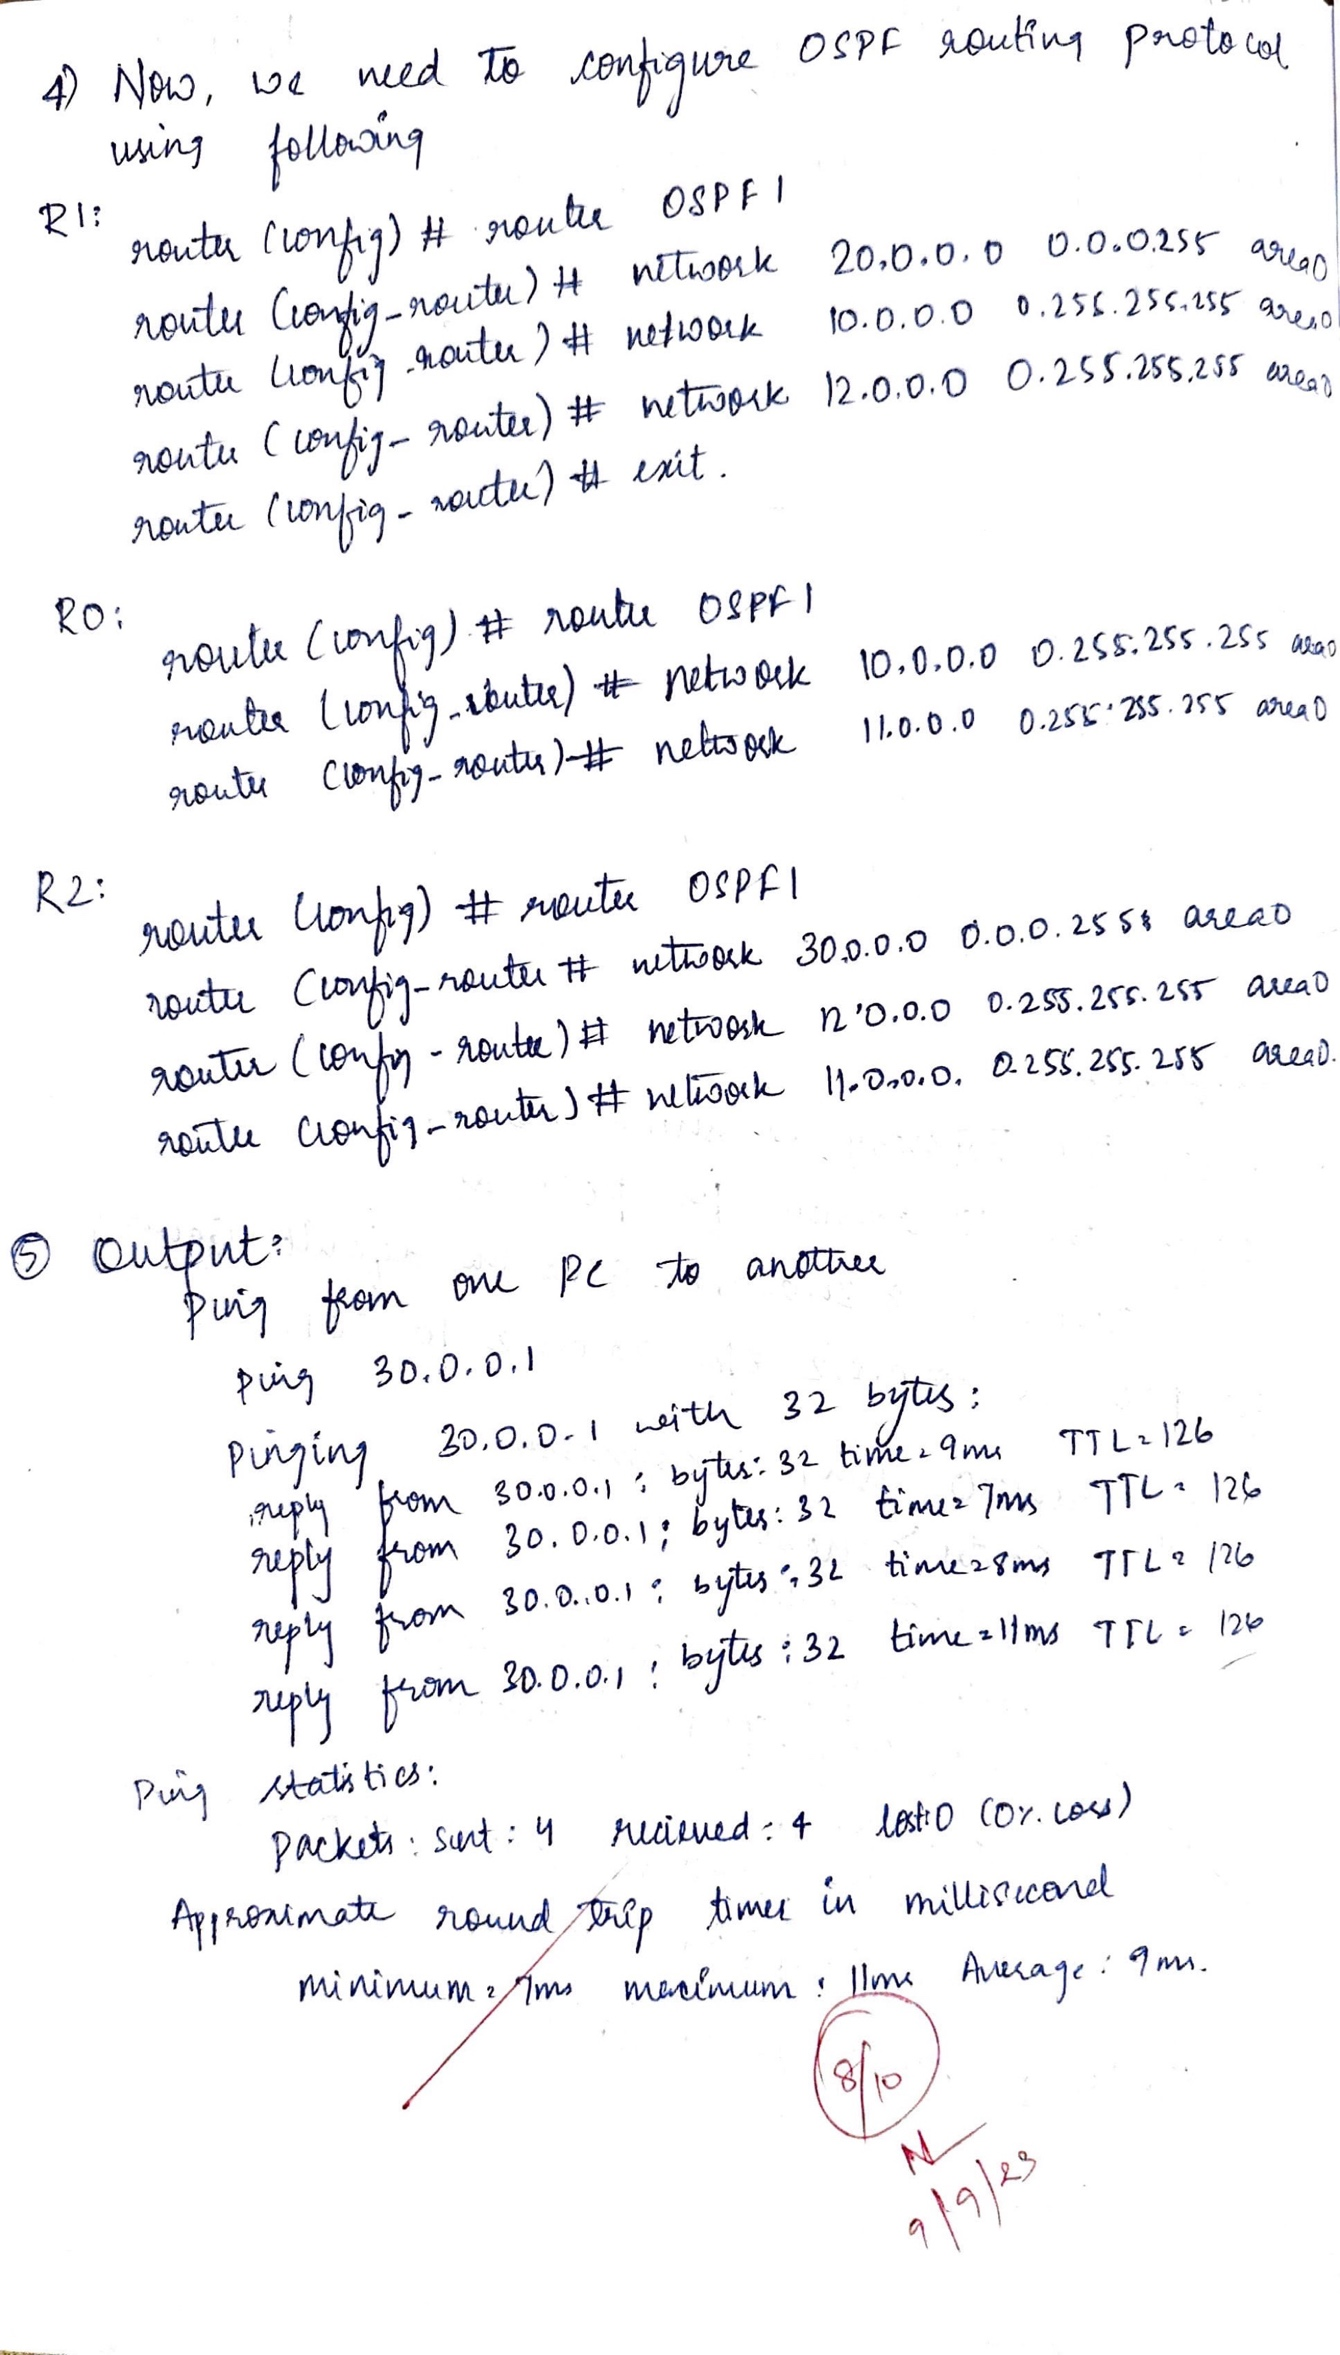 4) Now, we need to configure OSPF routing protocol
using following
R1:
router (config) # router OSPF 1
router (config-router) # network 20.0.0.0 0.0.0.255 area0
router (config-router) # network 10.0.0.0 0.255.255.255 area0
router (config-router) # network 12.0.0.0 0.255.255.255 area0
router (config-router) # exit.
R0:
router (config) # router OSPF 1
router (config-router) # network 10.0.0.0 0.255.255.255 area0
router (config-router) # network 11.0.0.0 0.255.255.255 area0
R2:
router (config) # router OSPF 1
router (config-router # network 30.0.0.0 0.0.0.255 area0
router (config-router) # network 12.0.0.0 0.255.255.255 area0
router (config-router) # network 11.0.0.0. 0.255.255.255 area0.
5 Output:
Ping from one PC to another
Ping 30.0.0.1
Pinging 30.0.0.1 with 32 bytes:
reply from 30.0.0.1 : bytes: 32 time=9ms TTL=126
reply from 30.0.0.1 ; bytes: 32 time=7ms TTL=126
reply from 30.0.0.1 : bytes: 32 time=8ms TTL=126
reply from 30.0.0.1 : bytes: 32 time=11ms TTL=126
Ping statistics:
Packets: sent: 4 recieved: 4 lost:0 (0% loss)
Approximate round trip times in millisecond
minimum=7ms maximum: 11ms Average: 9ms.
8/10
9/9/23